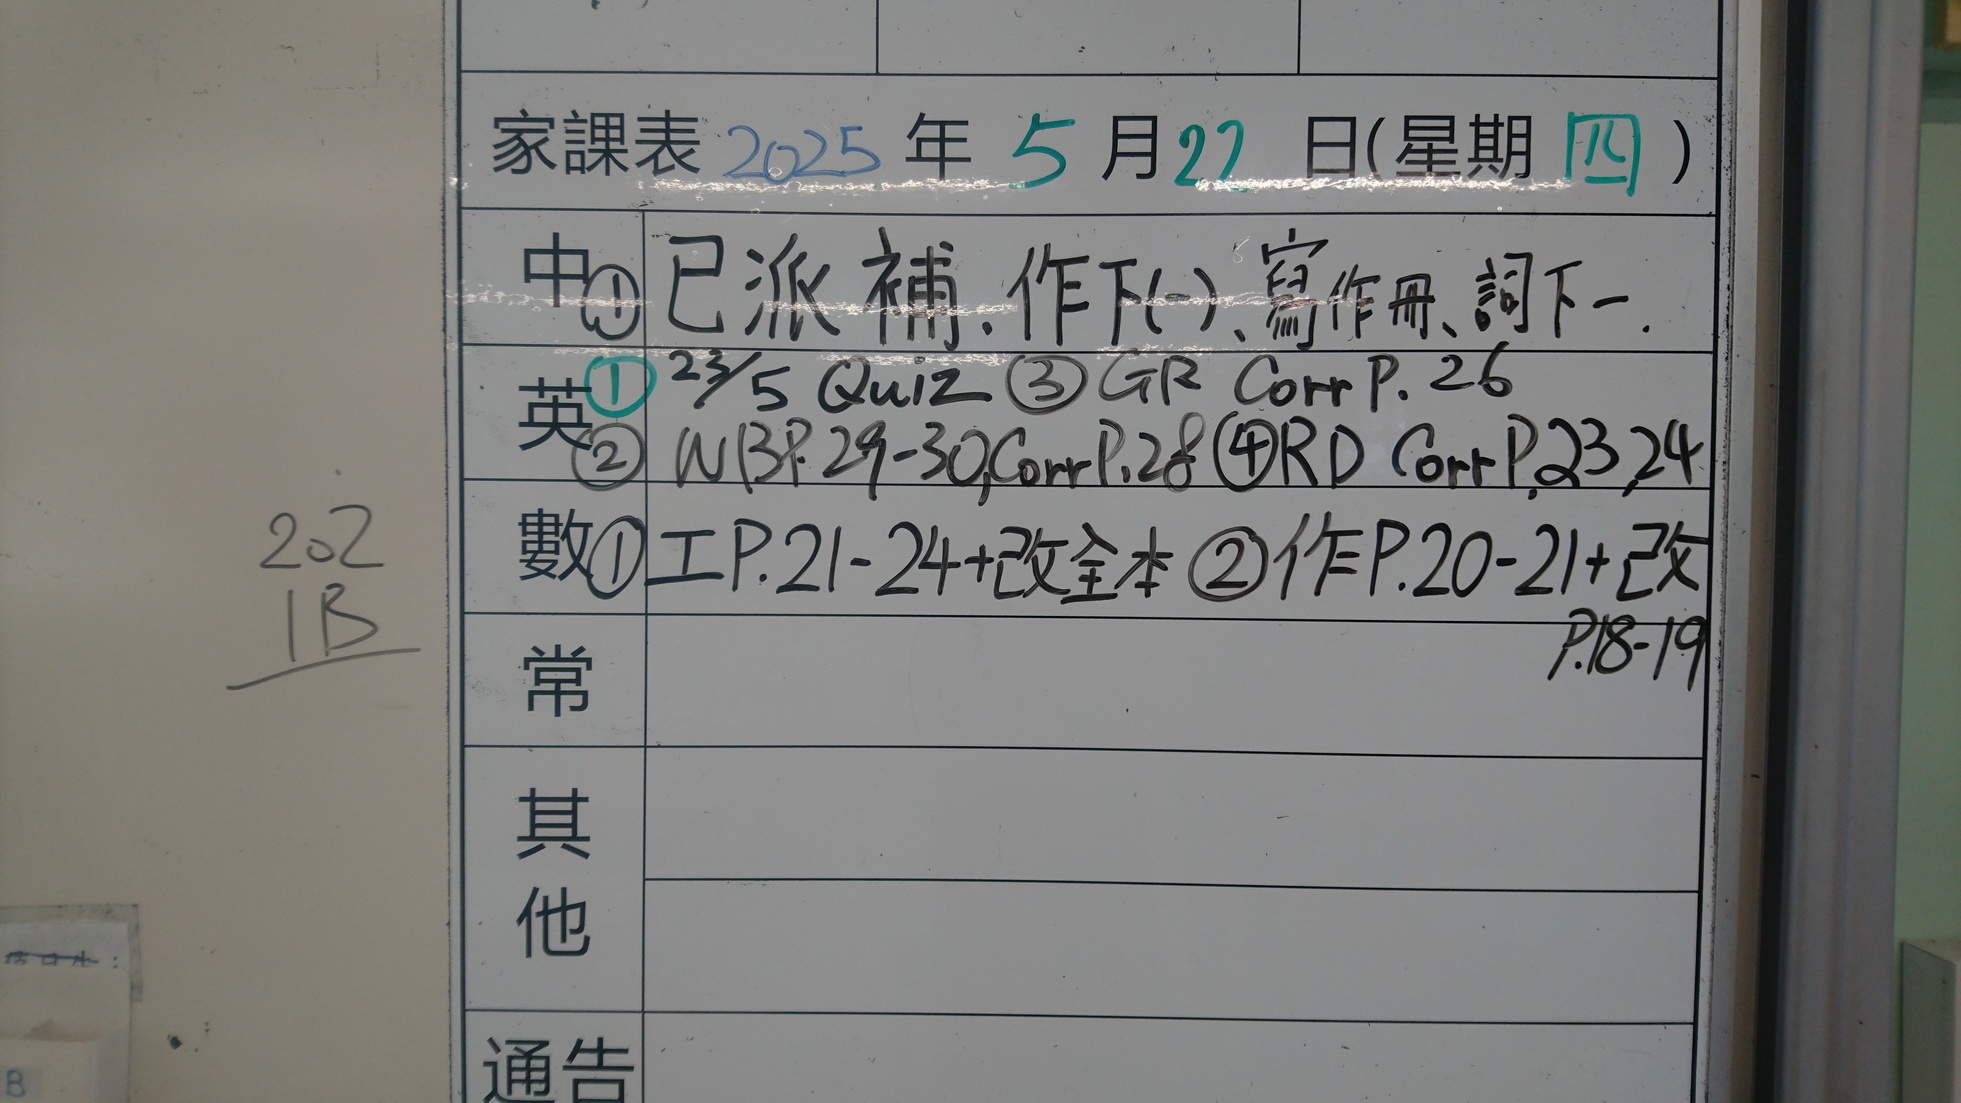 家課表 2025 年 5 月 22 日(星期 四 )
中 ① 已派補、作下(一)、寫作冊、詞下一.
英 ① 23/5 Quiz ③ GR Corr P. 26
② WB P. 29-30, Corr P. 28 ④ RD Corr P. 23, 24
數 ① 工 P. 21-24+改全本 ② 作 P. 20-21+改
P. 18-19
常
其
他
通告
202
1B
B